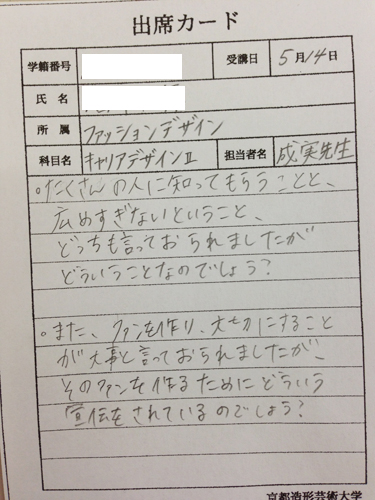 出席カード
学籍番号 受講日 5月14日
氏名
所属 ファッションデザイン
科目名 キャリアデザインⅡ 担当者名 成実先生
。たくさんの人に知ってもらうことと、
広めすぎないということ、
どっちも言っておられましたが
どういうことなのでしょう?
。また、ファンを作り、大切にすること
が大事と言っておられましたが、
そのファンを作るためにどういう
宣伝をされているのでしょう?
京都造形芸術大学